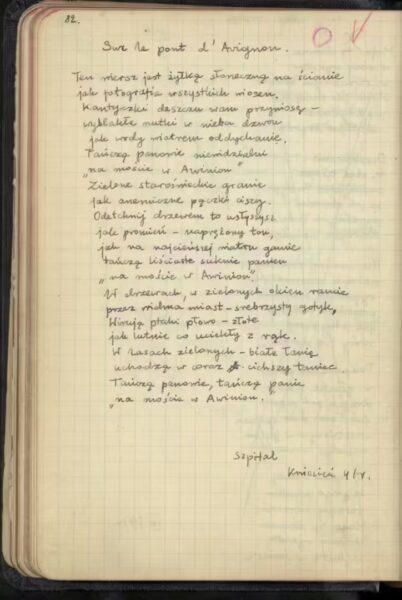 82.
Sur le pont d'Avignon.
Ten wiersz jest żyłką słoneczną na ścianie
jak fotografia wszystkich wiosen.
Kantyczki deszczu wam przyniosę –
wyblakłe nutki w nieba dzwon
jak wody wiatrem oddychanie.
Tańczą panowie niewidzialni
"na moście w Awinion".
Zielone staroświeckie granie
jak anemiczne pączki ciszy.
Odetchnij drzewem to usłyszysz
jak promień – naprężony ton,
jak na najcieńszej wiatru gamie
tańczą liściaste suknie panien
"na moście w Awinion".
W drzewach, w zielonych okien ramie
przez widma miast – srebrzysty gotyk,
Wirują ptaki płowo – złote
jak lutnie co uciekły z rąk.
W lasach zielonych – białe łanie
uchodzą w coraz cichszy taniec.
Tańczą panowie, tańczą panie
"na moście w Awinion."
Szpital
Kwiecień